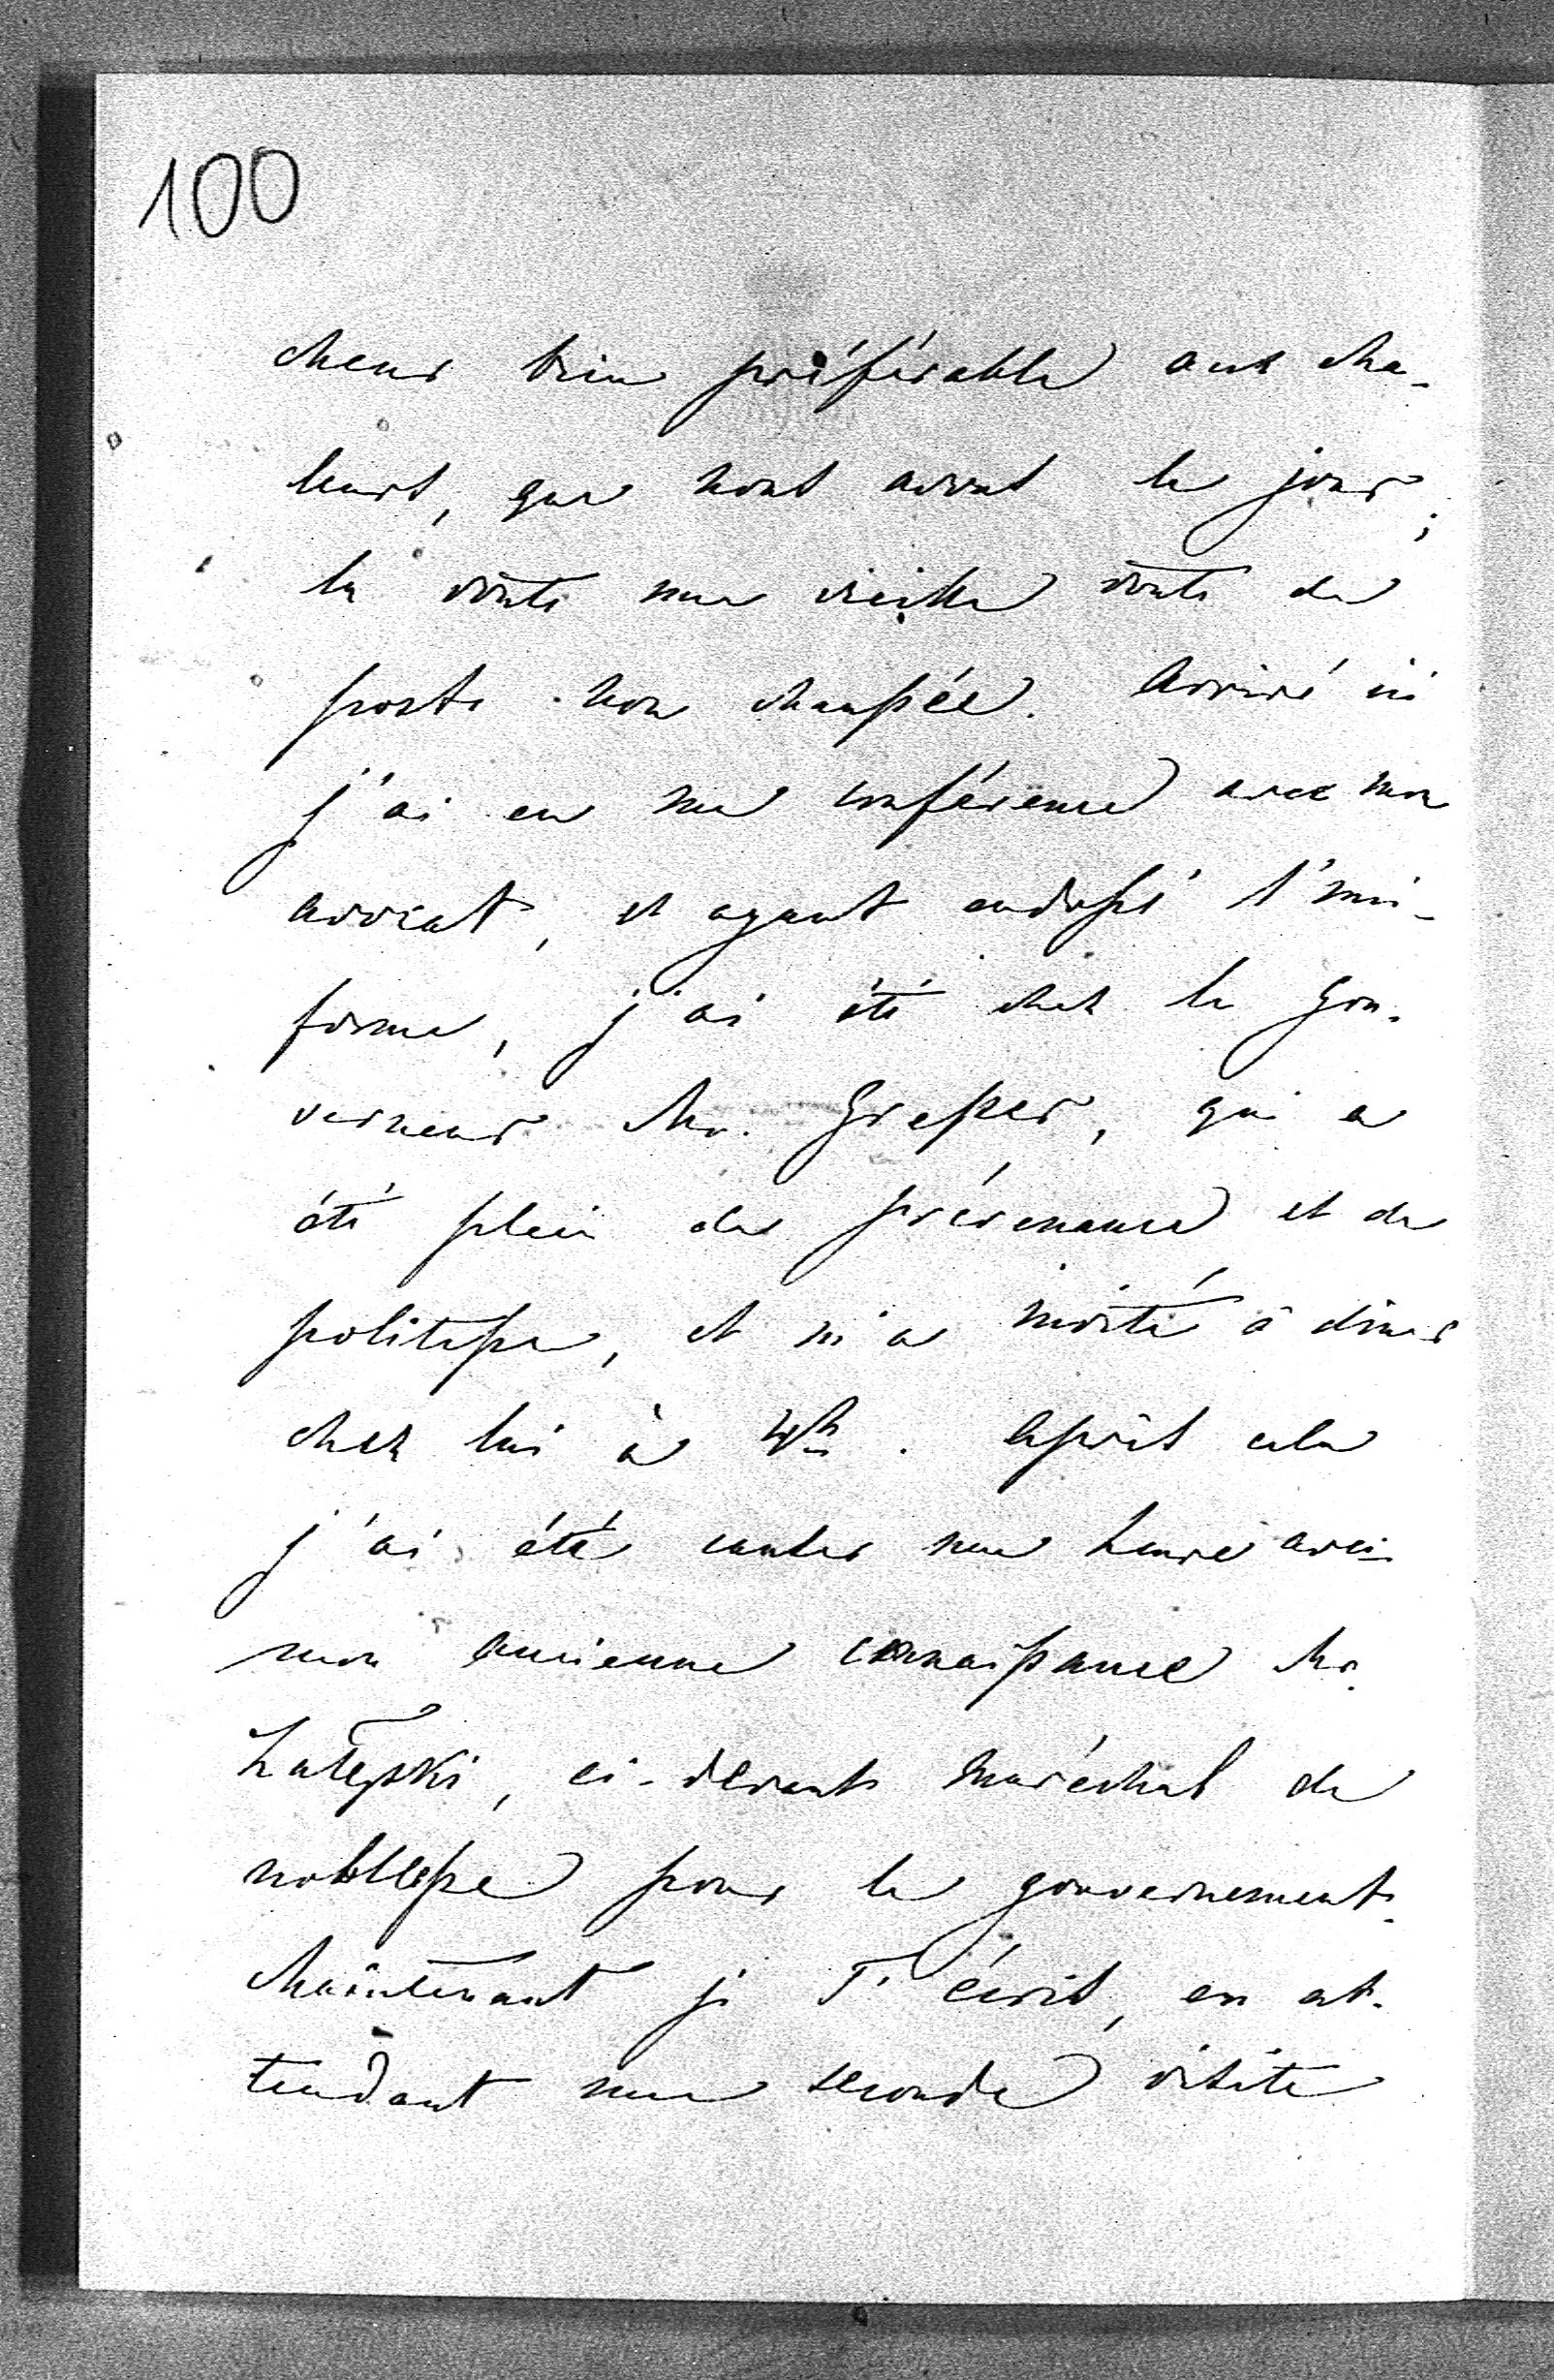 100
cheur bien préférable aux cha-
leurs, que nous avons le jour;
la route une vieille route de
poste non chaussée. Arrivé ici
j'ai eu une conférence avec mon
avocat, et ayant endossé l'uni-
forme, j'ai été chez le gou-
verneur Mr. Gresser, qui a
été plein de prévenance et de
politesse, et m'a invité à dîner
chez lui à 4h. Après cela
j'ai été causer une heure avec
mon ancienne connaissance Mr.
ci-devant maréchal de
noblesse pour le gouvernement.
Maintenant je T'écris, en at-
tendant une seconde visite